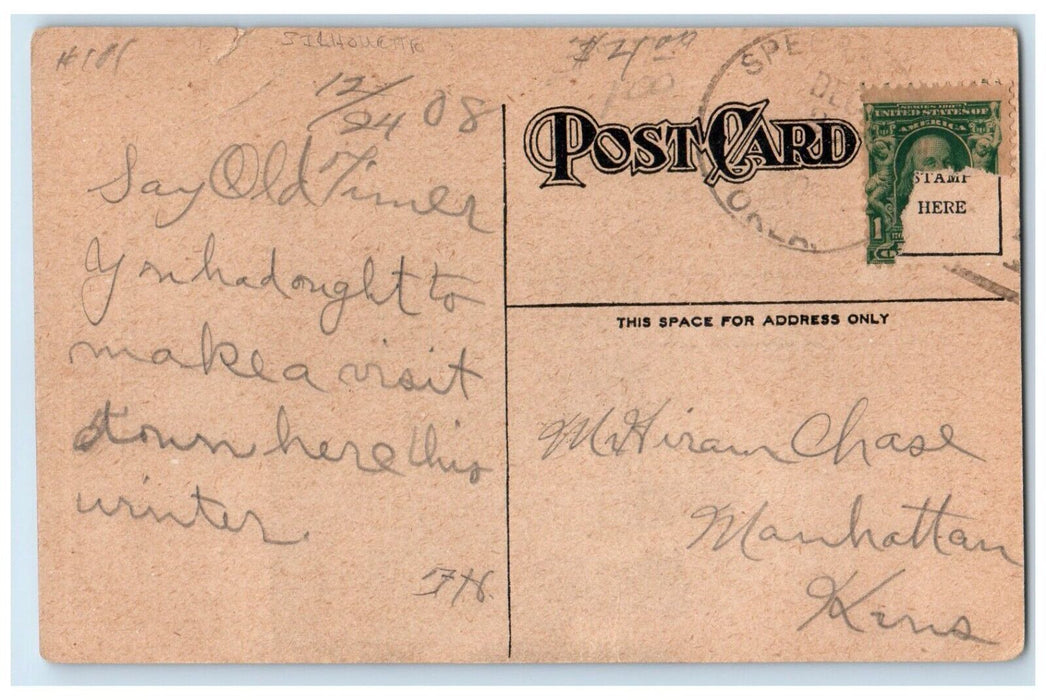 #181
SILHOUETTE
$4.00
12/24 08
Say Old Timer
You had ought to
make a visit
down here this
winter.
FH
POST CARD
SPE
DEC
OKLA.
SERIES 1902
UNITED STATES OF
AMERICA
1
STAMP
HERE
THIS SPACE FOR ADDRESS ONLY
Mr Hiram Chase
Manhattan
Kans